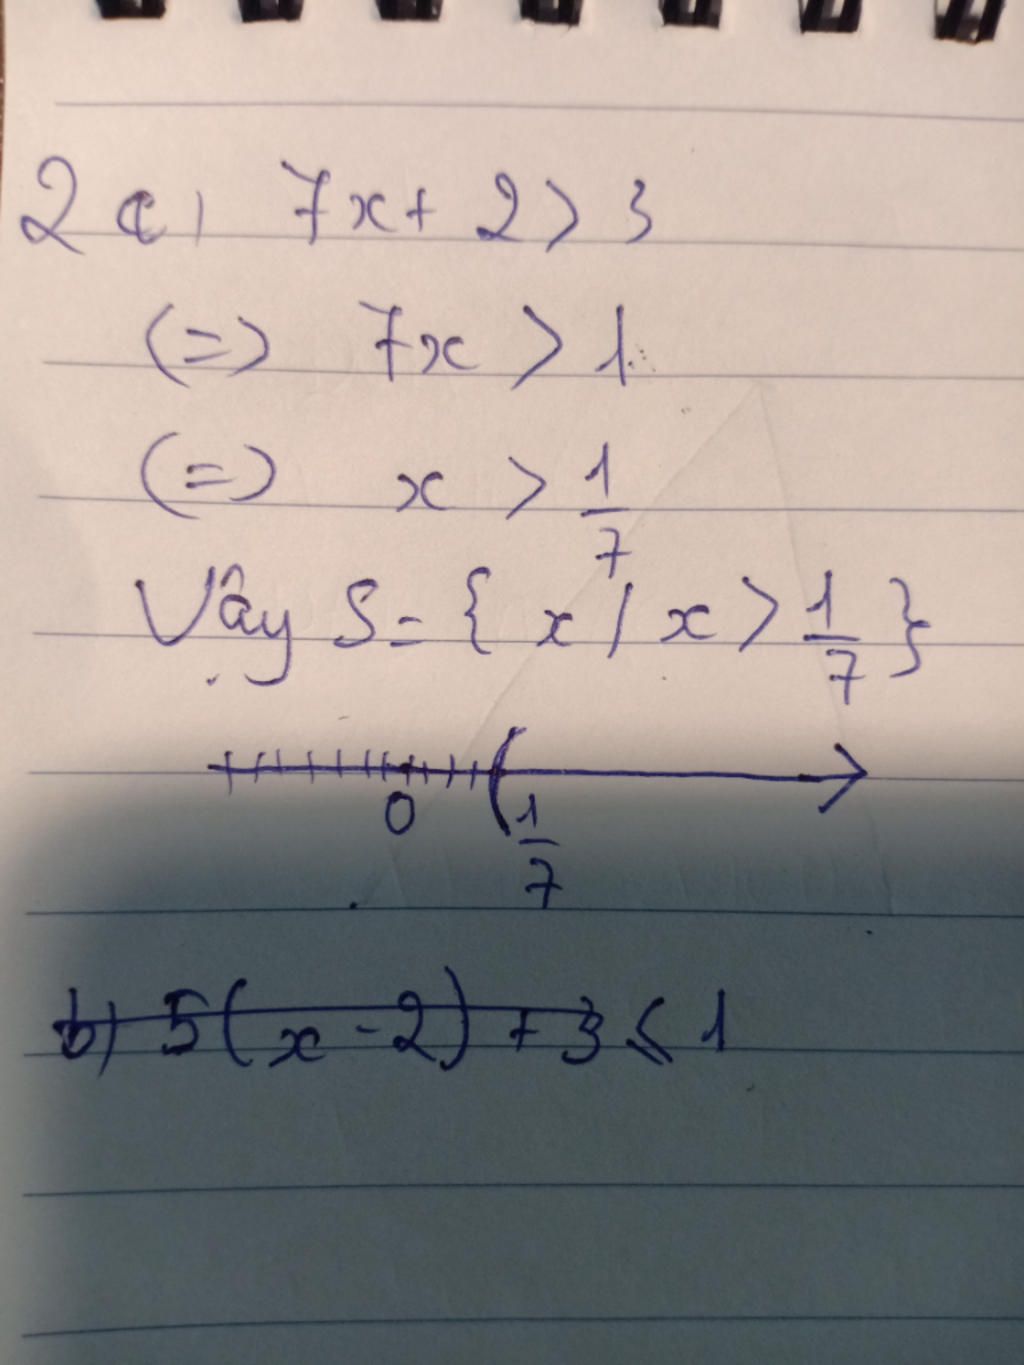 2 a) 7x + 2 > 3
(=) 7x > 1
(=) x > 1/7
Vậy S = { x / x > 1/7 }
0 ( 1/7
b) 5(x - 2) + 3 ≤ 1